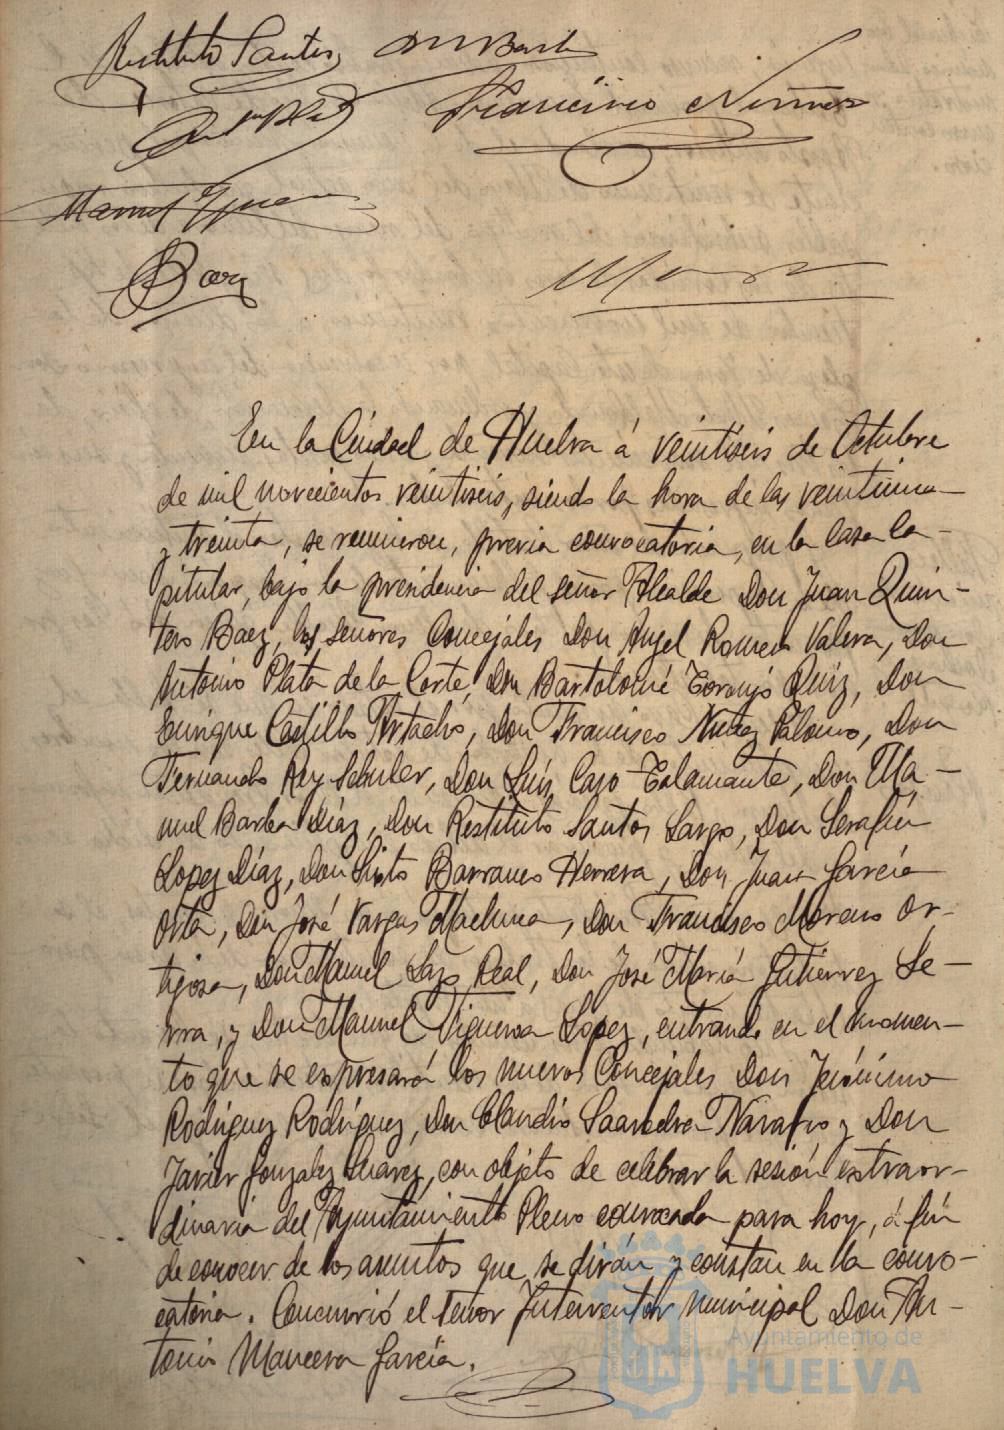 Restituto Santos
Francisco Nuñez
Manuel
En la Ciudad de Huelva á veintiseis de Octubre
de mil novecientos veintiseis, siendo la hora de las veintiuna
y treinta, se reunieron, previa convocatoria, en la Casa Ca-
pitular, bajo la presidencia del señor Alcalde Don Juan Quin-
tero Baez, los señores Concejales Don Angel Romero Valera, Don
Antonio Plata de la Corte, Don Bartolomé Toronjo Ruiz, Don
Enrique Castillo Artacho, Don Francisco Nuñez Palomo, Don
Fernando Rey Schuler, Don Luís Caso Talamante, Don Ma-
nuel Barba Díaz, Don Restituto Santos Largo, Don Serafín
Lopez Díaz, Don Sixto Barranco Herrera, Don Juan García
Orta, Don José Vargas Machuca, Don Francisco Moreno Or-
tigosa, Don Manuel Lazo Real, Don José María Gutiérrez Se-
rra, y Don Manuel Figueroa Lopez, entrando en el momen-
to que se expresará los nuevos Concejales Don Jerónimo
Rodríguez Rodríguez, Don Claudio Saavedra Navarro y Don
Javier Gonzalez Suarez, con objeto de celebrar la sesión extraor-
dinaria del Ayuntamiento Pleno convocada para hoy, á fin
de conocer de los asuntos que se dirán y constan en la convo-
catoria. Concurrió el señor Interventor Municipal Don An-
tonio Mancera García.
Ayuntamiento de
HUELVA